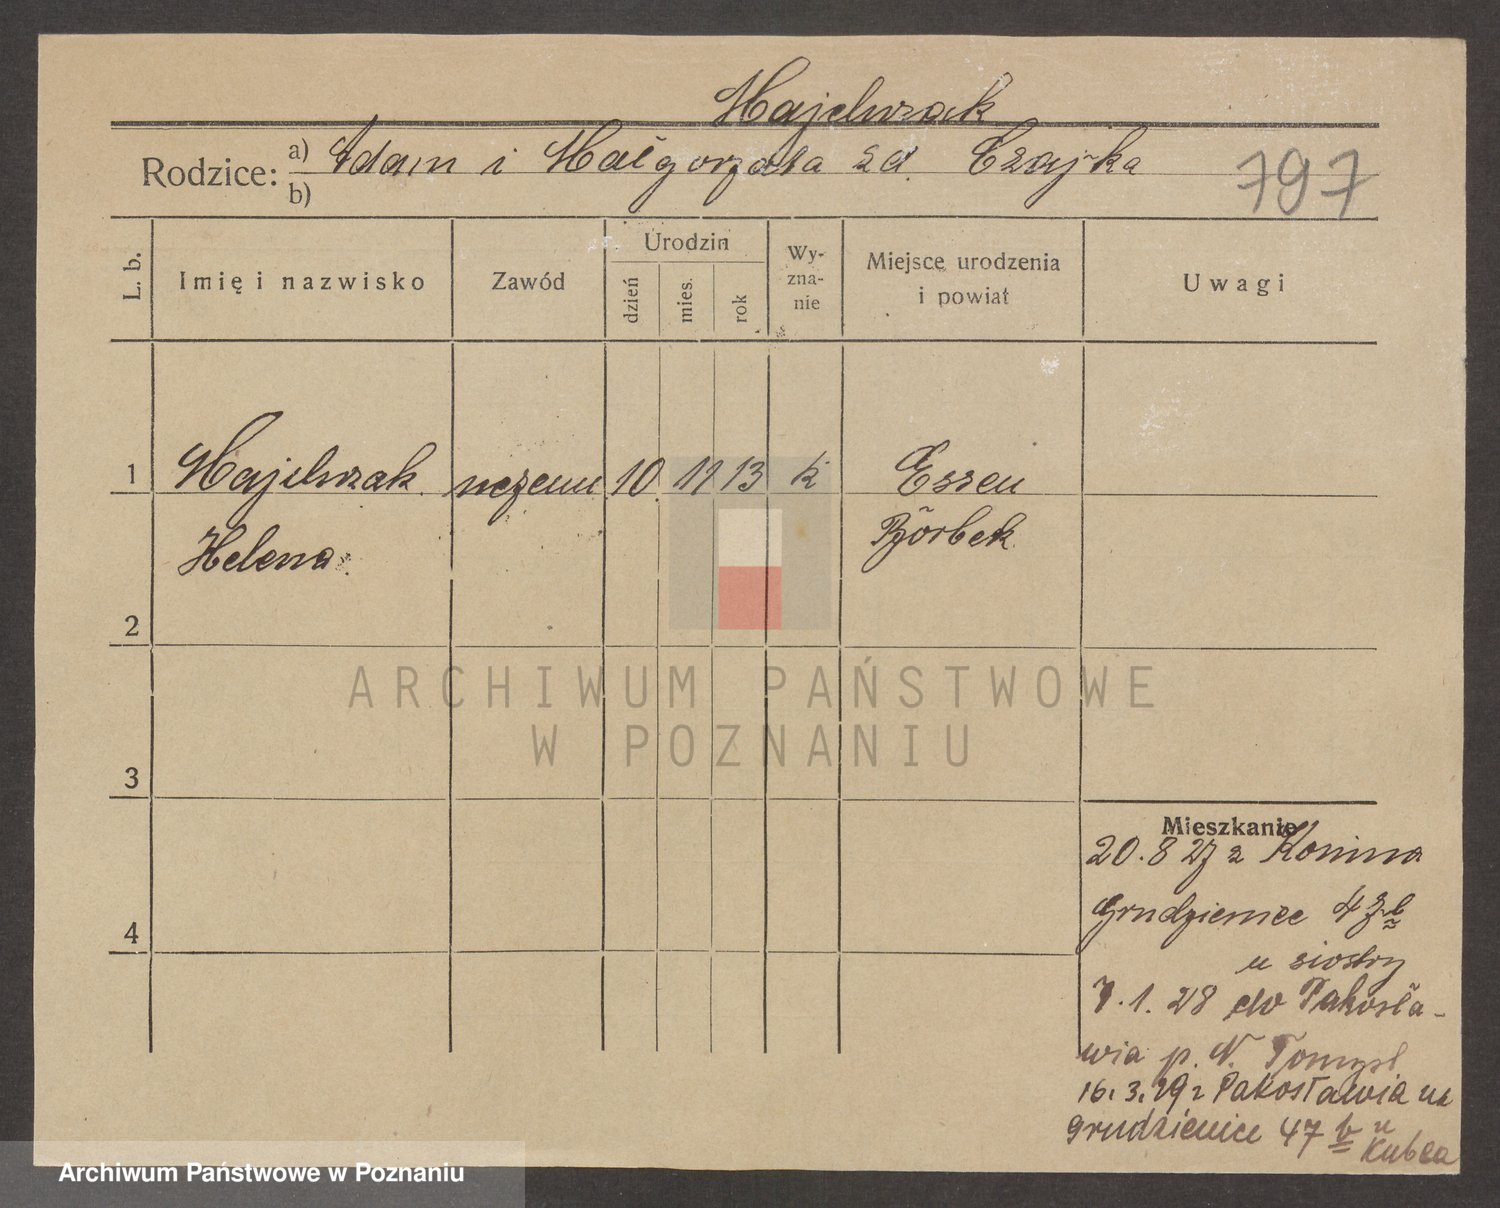 Majchrzak
Rodzice: a) Adam i Małgorzata zd. Czajka
b)
797
L. b.
Imię i nazwisko
Zawód
Urodzin
dzień
mies.
rok
Wy-
zna-
nie
Miejsce urodzenia
i powiat
Uwagi
1
Majchrzak
uczenn
10
11
13
k
Essen
Helena
Börbek
2
3
4
Mieszkanie
20.8 27 z Konina
Grudzieniec
u siostry
7.1.28 do Pakosła-
wia p. N. Tomyśl
16.3.29 z Pakosławia na
grudzieniec 47 b u
Kubea
ARCHIWUM PAŃSTWOWE
W POZNANIU
Archiwum Państwowe w Poznaniu